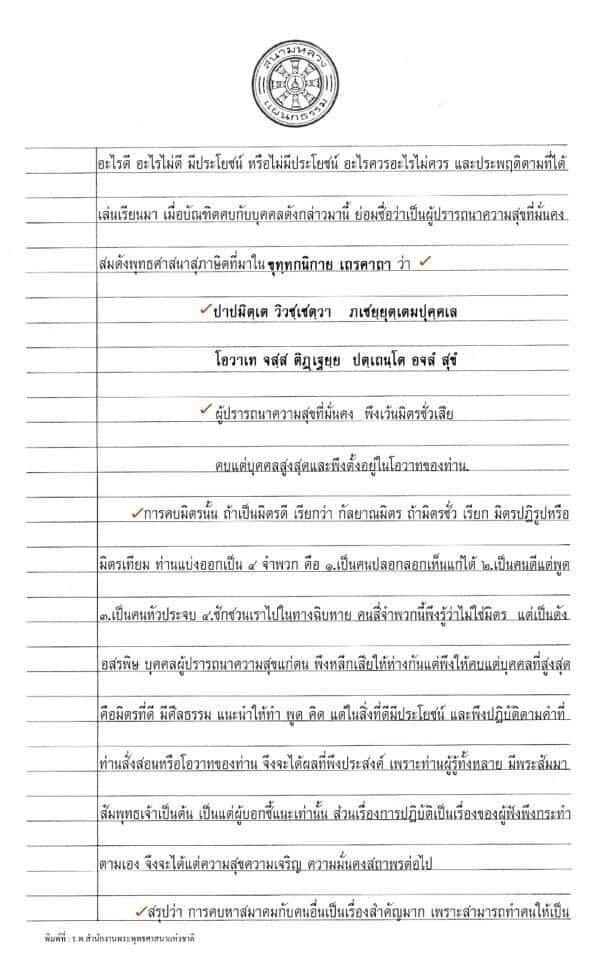 สนามหลวง
แผนกธรรม
อะไรดี อะไรไม่ดี มีประโยชน์ หรือไม่มีประโยชน์ อะไรควรอะไรไม่ควร และประพฤติตามที่ได้
เล่นเรียนมา เมื่อบัณฑิตคบกับบุคคลดังกล่าวมานี้ ย่อมชื่อว่าเป็นผู้ปรารถนาความสุขที่มั่นคง
สมดังพุทธศาสนาสุภาษิตที่มาใน ขุททกนิกาย เถรคาถา ว่า
ปาปมิตฺเต วิวชฺเชตฺวา ภเชยฺยุตฺเตมปุคฺคเล
โอวาเท จสฺสฺ ติฏฺเฐยฺย ปตฺเถนฺโต อจลํ สุขํ
ผู้ปรารถนาความสุขที่มั่นคง พึงเว้นมิตรชั่วเสีย
คบแต่บุคคลสูงสุดและพึงตั้งอยู่ในโอวาทของท่าน.
การคบมิตรนั้น ถ้าเป็นมิตรดี เรียกว่า กัลยาณมิตร ถ้ามิตรชั่ว เรียก มิตรปฏิรูปหรือ
มิตรเทียม ท่านแบ่งออกเป็น ๔ จำพวก คือ ๑.เป็นคนปลอกลอกเห็นแก่ได้ ๒.เป็นคนดีแต่พูด
๓.เป็นคนหัวประจบ ๔.ชักชวนเราไปในทางฉิบหาย คนสี่จำพวกนี้พึงรู้ว่าไม่ใช่มิตร แต่เป็นดัง
อสรพิษ บุคคลผู้ปรารถนาความสุขแก่ตน พึงหลีกเสียให้ห่างกันแต่พึงให้คบแต่บุคคลที่สูงสุด
คือมิตรที่ดี มีศีลธรรม แนะนำให้ทำ พูด คิด แต่ในสิ่งที่ดีมีประโยชน์ และพึงปฏิบัติตามคำที่
ท่านสั่งสอนหรือโอวาทของท่าน จึงจะได้ผลที่พึงประสงค์ เพราะท่านผู้รู้ทั้งหลาย มีพระสัมมา
สัมพุทธเจ้าเป็นต้น เป็นแต่ผู้บอกชี้แนะเท่านั้น ส่วนเรื่องการปฏิบัติเป็นเรื่องของผู้ฟังพึงกระทำ
ตามเอง จึงจะได้แต่ความสุขความเจริญ ความมั่นคงสถาพรต่อไป
สรุปว่า การคบหาสมาคมกับคนอื่นเป็นเรื่องสำคัญมาก เพราะสามารถทำคนให้เป็น
พิมพ์ที่ : ร.พ.สำนักงานพระพุทธศาสนาแห่งชาติ